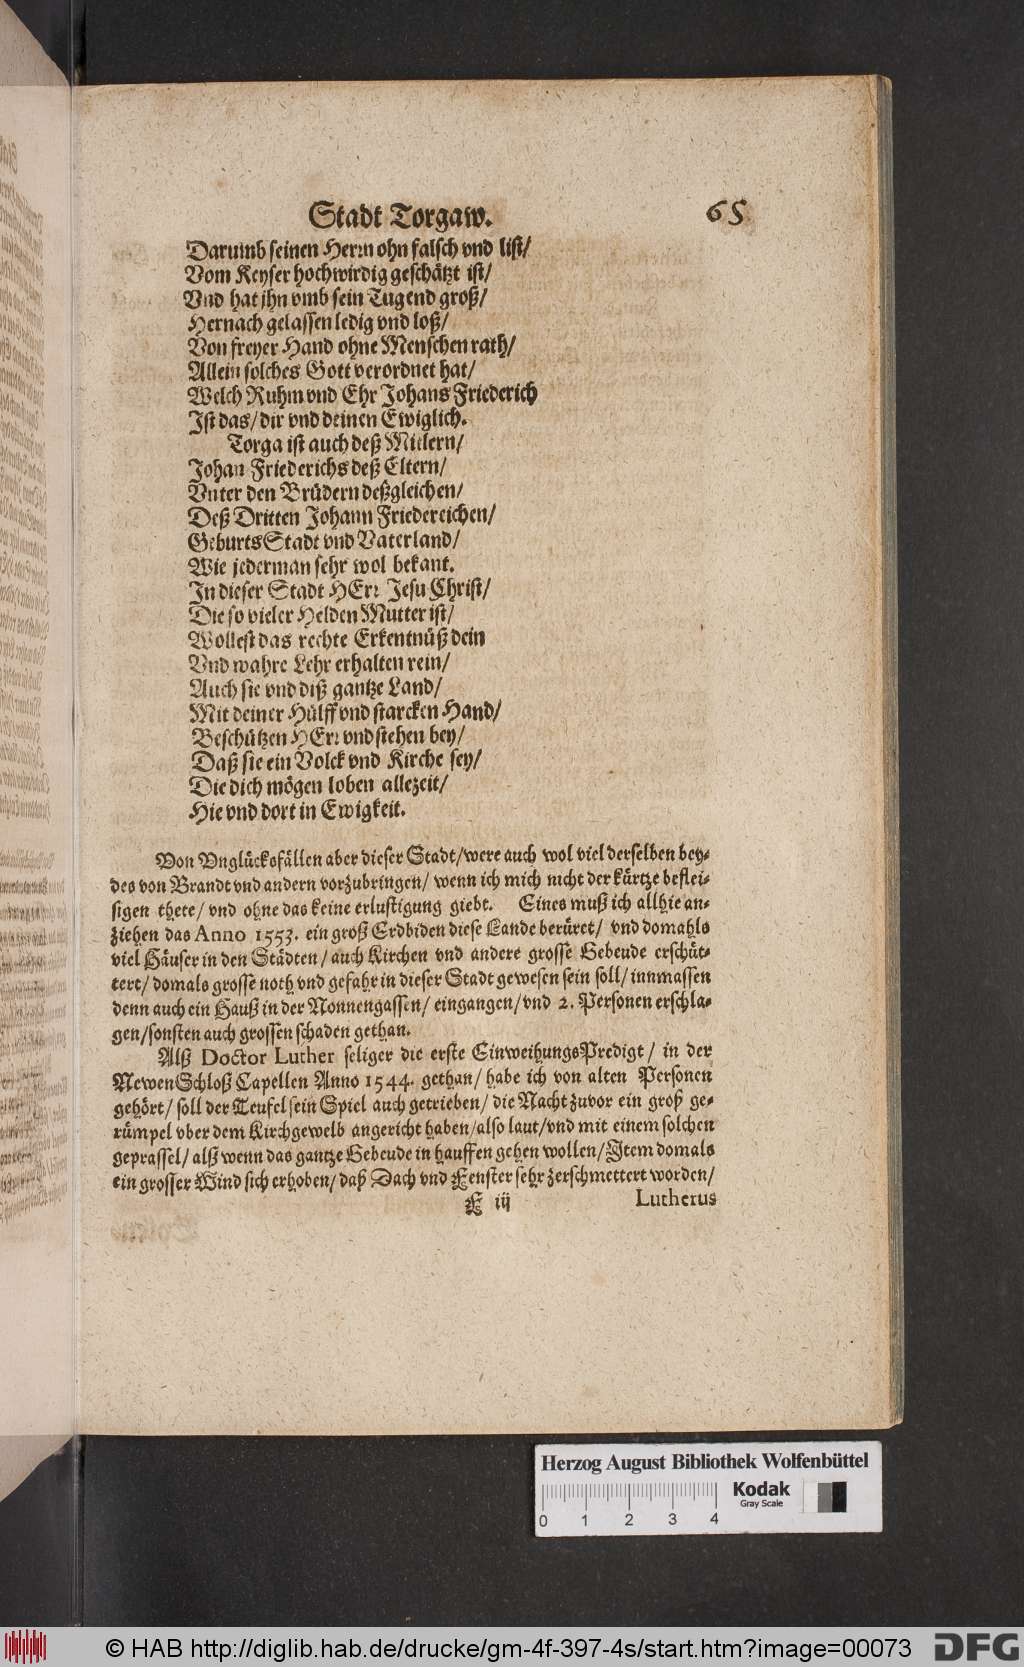 Stadt Torgaw. 65
Darumb seinen Herrn ohn falsch vnd list/
Vom Keyser hochwirdig geschätzt ist/
Vnd hat jhn vmb sein Tugend groß/
Hernach gelassen ledig vnd loß/
Von freyer Hand ohne Menschen rath/
Allein solches Gott verordnet hat/
Welch Ruhm vnd Ehr Johans Friederich
Ist das/ dir vnd deinen Ewiglich.
Torga ist auch deß Mitlern/
Johan Friederichs deß Eltern/
Vnter den Brüdern deßgleichen/
Deß Dritten Johann Friedereichen/
GeburtsStadt vnd Vaterland/
Wie jederman sehr wol bekant.
In dieser Stadt HErr Jesu Christ/
Die so vieler Helden Mutter ist/
Wollest das rechte Erkentnüß dein
Vnd wahre Lehr erhalten rein/
Auch sie vnd diß gantze Land/
Mit deiner Hülff vnd starcken Hand/
Beschützen HErr vnd stehen bey/
Daß sie ein Volck vnd Kirche sey/
Die dich mögen loben allezeit/
Hie vnd dort in Ewigkeit.
Von Vnglücksfällen aber dieser Stadt/ were auch wol viel derselben bey-
des von Brandt vnd andern vorzubringen/ wenn ich mich nicht der kürtze beflei-
sigen thete/ vnd ohne das keine erlustigung giebt. Eines muß ich allhie an-
ziehen das Anno 1553. ein groß Erdbiden diese Lande berüret/ vnd domahls
viel Häuser in den Städten/ auch Kirchen vnd andere grosse Gebeude erschüt-
tert/ domals grosse noth vnd gefahr in dieser Stadt gewesen sein soll/ innmassen
denn auch ein Hauß in der Nonnengassen/ eingangen/ vnd 2. Personen erschla-
gen/ sonsten auch grossen schaden gethan.
Alß Doctor Luther seliger die erste EinweihungsPredigt/ in der
NewenSchloß Capellen Anno 1544. gethan/ habe ich von alten Personen
gehört/ soll der Teufel sein Spiel auch getrieben/ die Nacht zuvor ein groß ge-
rümpel vber dem Kirchgewelb angericht haben/ also laut/ vnd mit einem solchen
geprassel/ alß wenn das gantze Gebeude in hauffen gehen wollen/ Item domals
ein grosser Wind sich erhoben/ daß Dach vnd Fenster sehr zerschmettert worden/
F iij Lutherus
Herzog August Bibliothek Wolfenbüttel
Kodak
Gray Scale
0 1 2 3 4
© HAB http://diglib.hab.de/drucke/gm-4f-397-4s/start.htm?image=00073 DFG